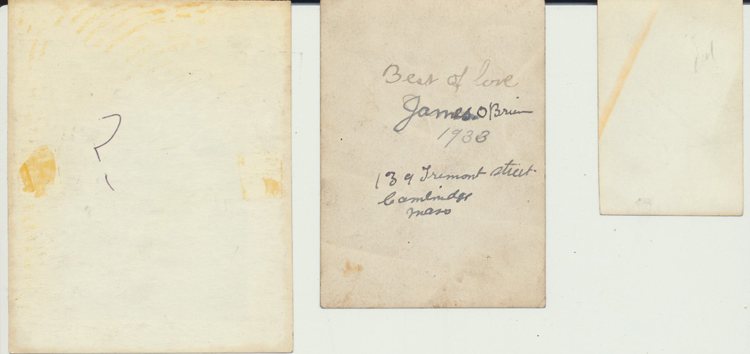 ?
Best of love
James O'Brien
1933
139 Tremont street
Cambridge
Mass